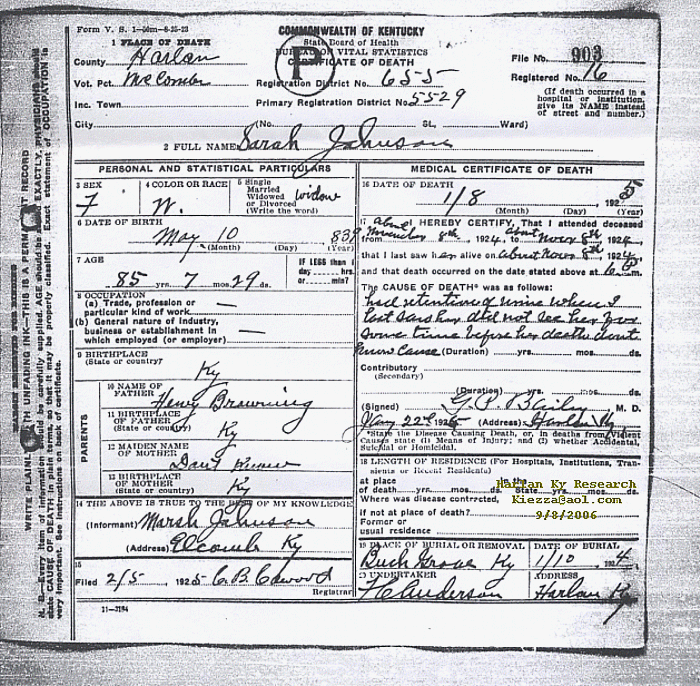 Form V. S. 1-50m-6-25-23
COMMONWEALTH OF KENTUCKY
State Board of Health
BUREAU OF VITAL STATISTICS
CERTIFICATE OF DEATH
P
1 PLACE OF DEATH
County Harlan
Vot. Pct. McComb
Inc. Town
City (No. St., Ward)
Registration District No. 655
Primary Registration District No. 5529
File No. 903
Registered No. 16
(If death occurred in a
hospital or institution,
give its NAME instead
of street and number.)
2 FULL NAME Sarah Johnson
PERSONAL AND STATISTICAL PARTICULARS
3 SEX
F
4 COLOR OR RACE
W.
5 Single
Married
Widowed
or Divorced
(Write the word)
widow
6 DATE OF BIRTH
May 10, 839
(Month) (Day) (Year)
7 AGE
85 yrs. 7 mos. 29 ds.
IF LESS than 1
day hrs.
or min?
8 OCCUPATION
(a) Trade, profession or
particular kind of work
(b) General nature of industry,
business or establishment in
which employed (or employer)
9 BIRTHPLACE
(State or country?
Ky
PARENTS
10 NAME OF
FATHER Henry Browning
11 BIRTHPLACE
OF FATHER
(State or country) Ky
12 MAIDEN NAME
OF MOTHER Dont Know
13 BIRTHPLACE
(State or country) Ky
14 THE ABOVE IS TRUE TO THE BEST OF MY KNOWLEDGE
(Informant) Marsh Johnson
(Address) Elcomb Ky
15
Filed 2/5 1925 C. B. Cawood
Registrar
11-3184
MEDICAL CERTIFICATE OF DEATH
16 DATE OF DEATH
1/8, 1925
(Month) (Day) (Year)
17 I HEREBY CERTIFY, That I attended deceased
from about November 8th, 1924, to about Nov 8th 1924,
that I last saw her alive on about Nov 8th, 1924,
and that death occurred on the date stated above at 6 m.
The CAUSE OF DEATH* was as follows:
had retention of urine when I
last saw her did not see her for
some time before her death dont
know cause (Duration) yrs. mos. ds.
Contributory
(Secondary)
(Duration) yrs. mos. ds.
(Signed) G. P. Bailey M. D.
Jany 22nd 1925 (Address) Harlan Ky
*State the Disease Causing Death, or, in deaths from Violent
Causes state (1) Means of Injury; and (2) whether Accidental,
Suicidal or Homicidal.
18 LENGTH OF RESIDENCE (For Hospitals, Institutions, Tran-
sients or Recent Residents)
at place In the
of death yrs. mos. ds. State yrs. mos. ds.
Where was disease contracted,
if not at place of death?
Former or
usual residence
Harlan Ky Research
Kiezza@aol.com
9/8/2006
19 PLACE OF BURIAL OR REMOVAL
Buch Grove Ky
DATE OF BURIAL
1/10, 1924
20 UNDERTAKER
F C Anderson
ADDRESS
Harlan Ky